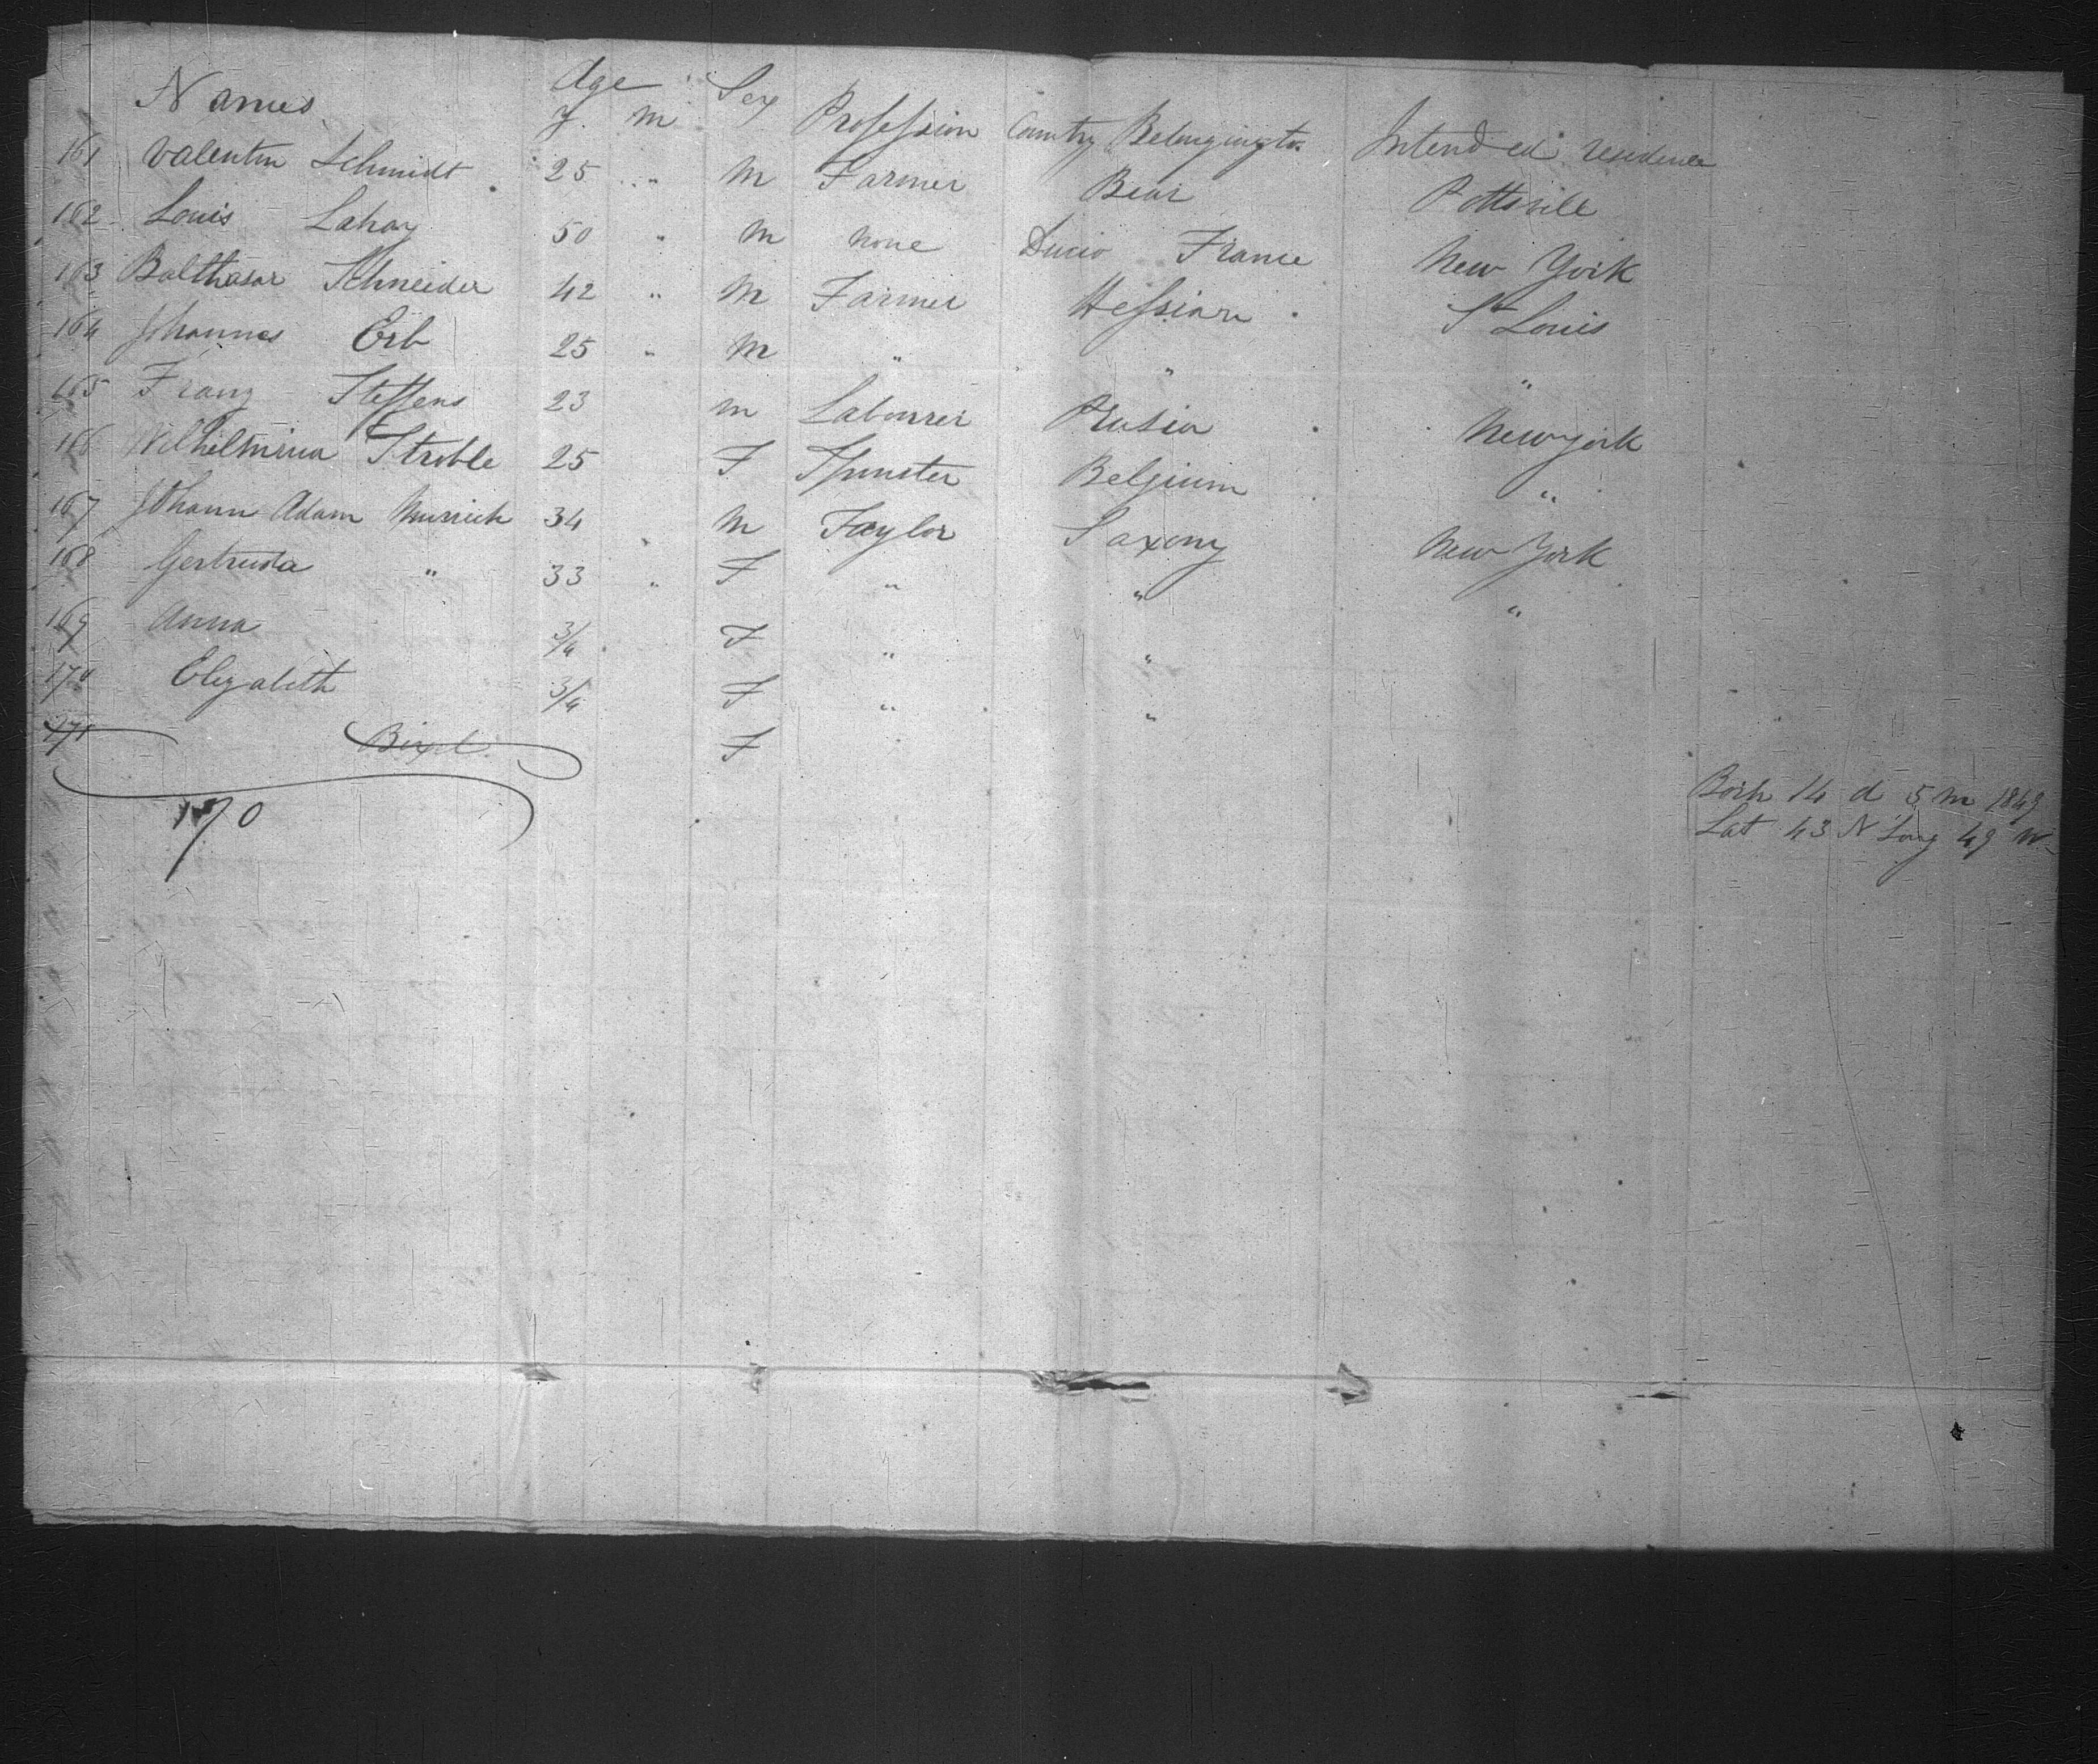 Names Age Sex Profession Country Belonging to Intended residence
Y. M
161 Valentin Schmidt 25 " M Farmer Beiar Pottsvill
162 Louis Lahay 50 " M None France New York
163 Balthasar Schneider 42 " M Farmer Hessian St Louis
164 Johannes Erb 25 " M " " "
165 Franz Steffens 23 M Labourer Prusia New york
166 Wilhelmina Stroble 25 F Spinster Belgium "
167 Johann Adam 34 M Taylor Saxony New York
168 Gertruda " 33 " F " " "
169 Anna 3/4 F " "
170 Elizabeth 3/4 F " "
171 Bixel F
170
Born 14 d 5 m 1849
Lat 43 N Long 49 W